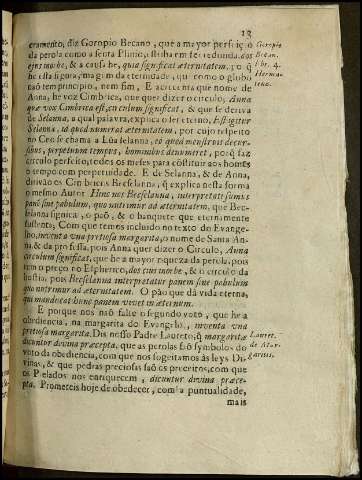 13
cramento, diz Goropio Becano, que a mayor perfeição
da perola como a senta Plinio, estriba em ser redonda, dos
ejus in orbe, & a causa he, quia significat æternitatem, porq̃
he esta figura, imagem da eternidade, que como o globo
naõ tem principio, nem fim, E acrecenta que nome de
Anna, he voz Cimbrica, que quer dizer o circulo, Anna
quæ vox Cimbrica est, circulum significat, & que se deriva
de Selanna, a qual palavra, explica o ser eterno, Effigitur
Selanna, id quod numerat æternitatem, por cujo respeito
no Ceo se chama a Lûa Selanna, eo quod menstruis decur-
sibus, perpetuum tempus, hominibus denumeret, porq̃ faz
circulo perfeito, todos os meses para cõstituir aos homẽs
o tempo com perpetuidade. E de Selanna, & de Anna,
dirivão os Cimbricos Beeselanna, q̃ explica nesta forma
o mesmo Autor Hinc nos Beeselanna, interpretatissimus
panè sive pabulum, quo nutrimur ad æternitatem, que Bee-
selanna significa, o paõ, & o banquete que eternamente
sustenta; Com que temos incluido no texto do Evange-
lho, inventa una pretiosa margarita, o nome de Santa An-
na, & da professa, pois Anna quer dizer o Circulo, Anna
circulum significat, que he a mayor riqueza da perola, pois
tem o preço no Espherico, dos ejus in orbe, & o circulo da
hostia, pois Beeselanna interpretatur panem sive pabulum
quo nutrimur ad æternitatem. O pão que dá vida eterna,
qui manducat hunc panem vivet in æternum.
E porque nos naõ falte o segundo voto, que he a
obediencia, na margarita do Evangelo, inventa una
pretiosa margarita. Dis nosso Padre Laureto, q̃ margaritæ
dicuntur divina præcepta, que as perolas saõ symbolo do
voto da obediencia, com que nos sogeitamos ás leys Di-
vinas, & que pedras preciosas saõ os preceitos, com que
os Prelados nos enriquecem, dicuntur divina præce-
pta. Prometeis hoje de obedecer, com a puntualidade,
mais
Goropio
Becan.
lbr. 4.
Herma-
tena.
Lauret.
de Mar-
garitis.